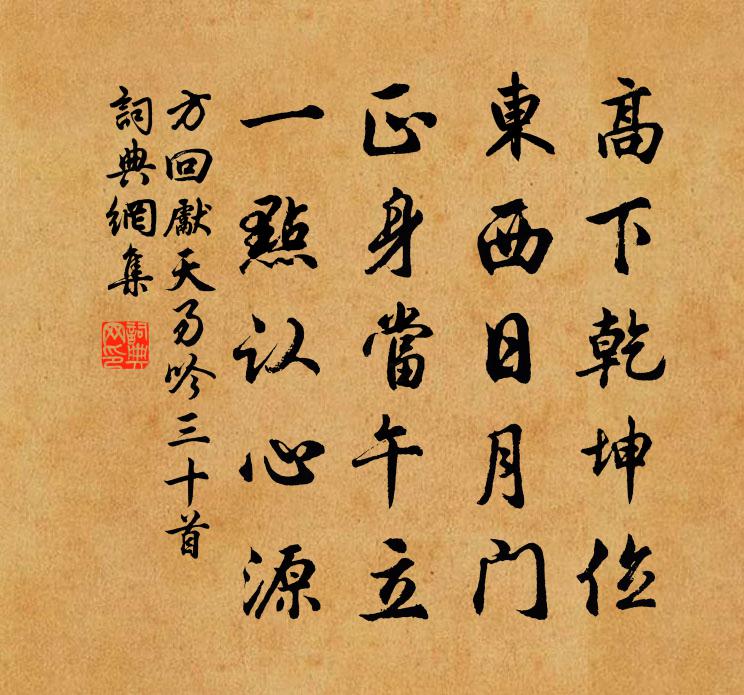 高下乾坤位
東西日月门
正身當午立
一點认心源
方回獻天易吟三十首
詞典網集
詞典网印